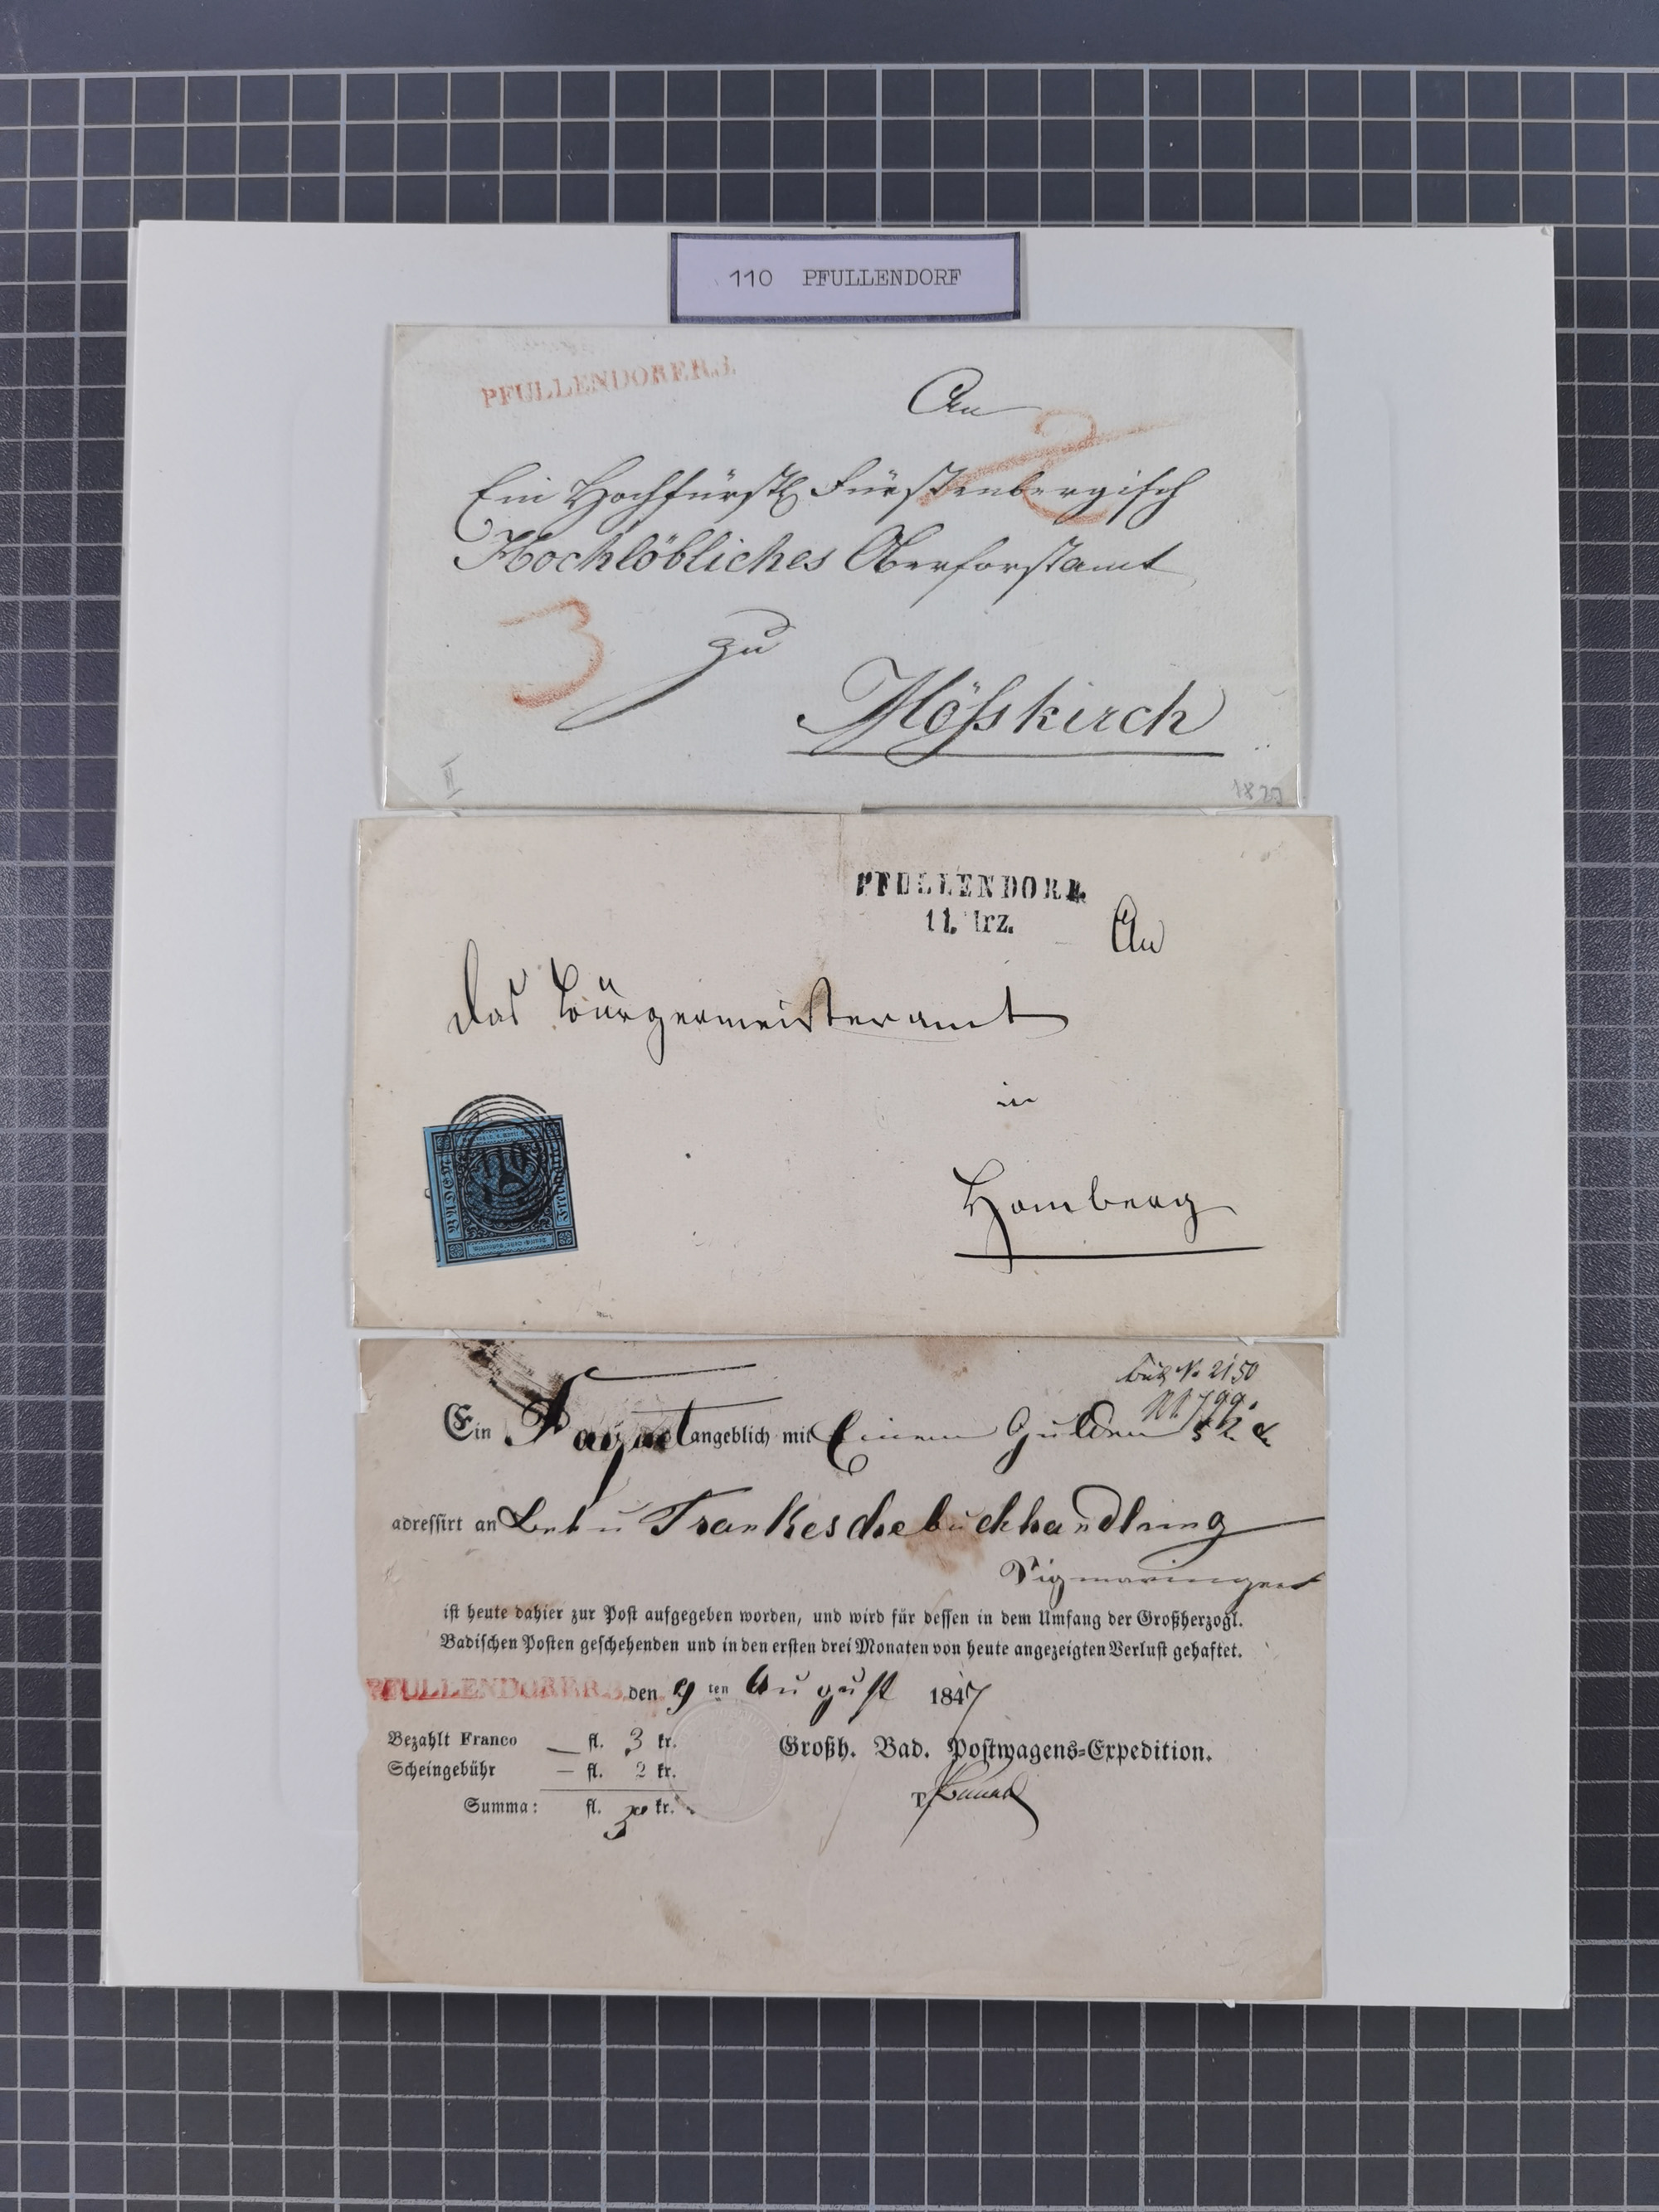 110 PFULLENDORF
PFULLENDORF R.3.
An
2
Ein Hochfürstl Fürstenbergisch
Hochlöbliches Oberforstamt
3
zu
Mößkirch
II
PFULLENDORF.
11. rz.
An
das Bürgermeisteramt
in
BADEN
110
Freimarke
Homberg
No 2150
No 799.
Ein Paquet angeblich mit Einem Gulden
adressirt an u Frankesche buchhandlung
Sigmaringen
ist heute dahier zur Post aufgegeben worden, und wird für dessen in dem Umfang der Großherzogl.
Badischen Posten geschehenden und in den ersten drei Monaten von heute angezeigten Verlust gehaftet.
PFULLENDORF R.3. den 9 ten August 1847
Bezahlt Franco — fl. 3 kr.
Großh. Bad. Postwagens-Expedition.
Scheingebühr — fl. 2 kr.
Summa: fl. kr.